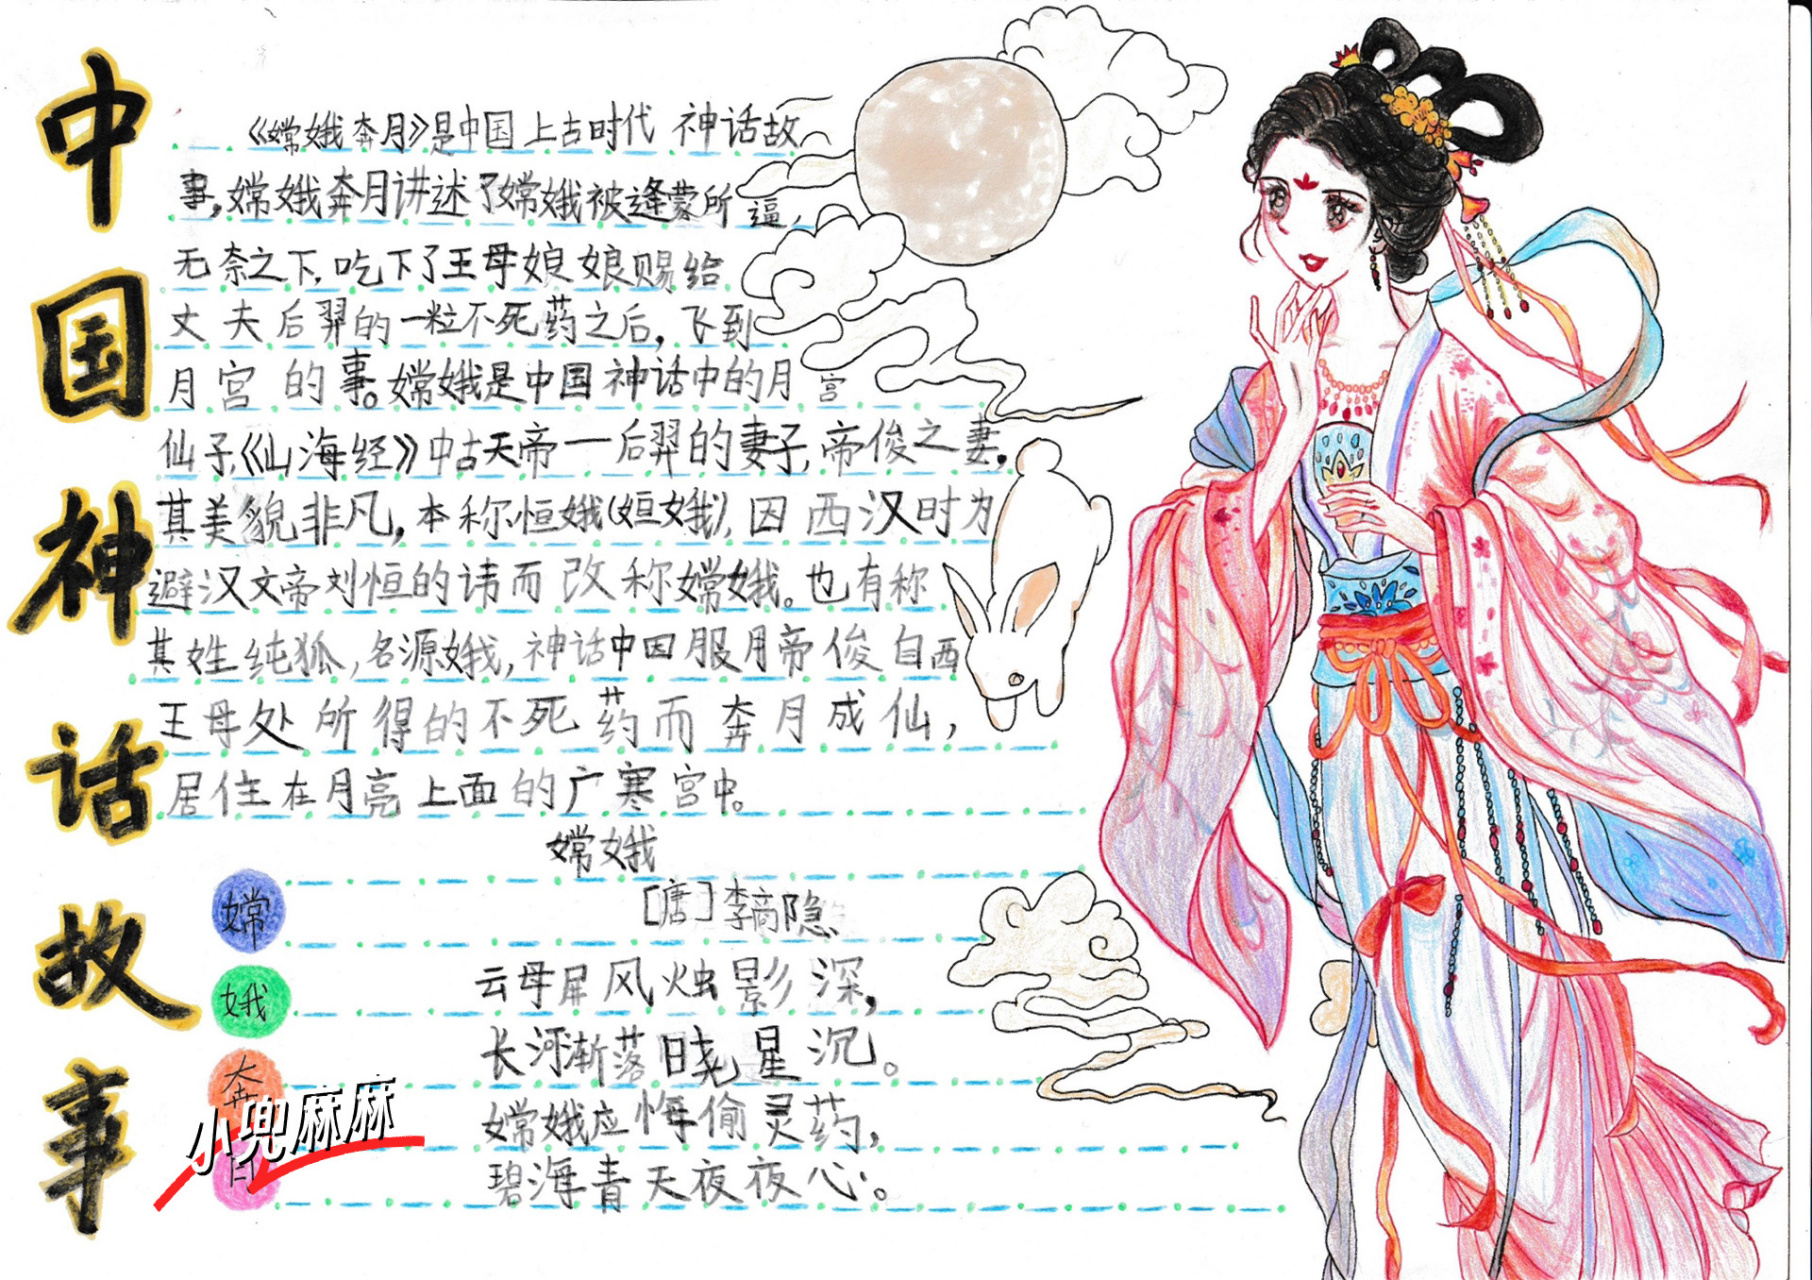 中国神话故事
《嫦娥奔月》是中国上古时代神话故
事,嫦娥奔月讲述了嫦娥被逄蒙所逼,
无奈之下,吃下了王母娘娘赐给
丈夫后羿的一粒不死药之后,飞到
月宫的事。嫦娥是中国神话中的月宫
仙子,《山海经》中古天帝一后羿的妻子,帝俊之妻。
其美貌非凡,本称恒娥(姮娥),因西汉时为
避汉文帝刘恒的讳而改称嫦娥。也有称
其姓纯狐,名源娥,神话中因服月帝俊自西
王母处所得的不死药而奔月成仙,
居住在月亮上面的广寒宫中。
嫦娥
[唐]李商隐
云母屏风烛影深,
长河渐落晓星沉。
嫦娥应悔偷灵药,
碧海青天夜夜心。
嫦
娥
奔
月
小兜麻麻